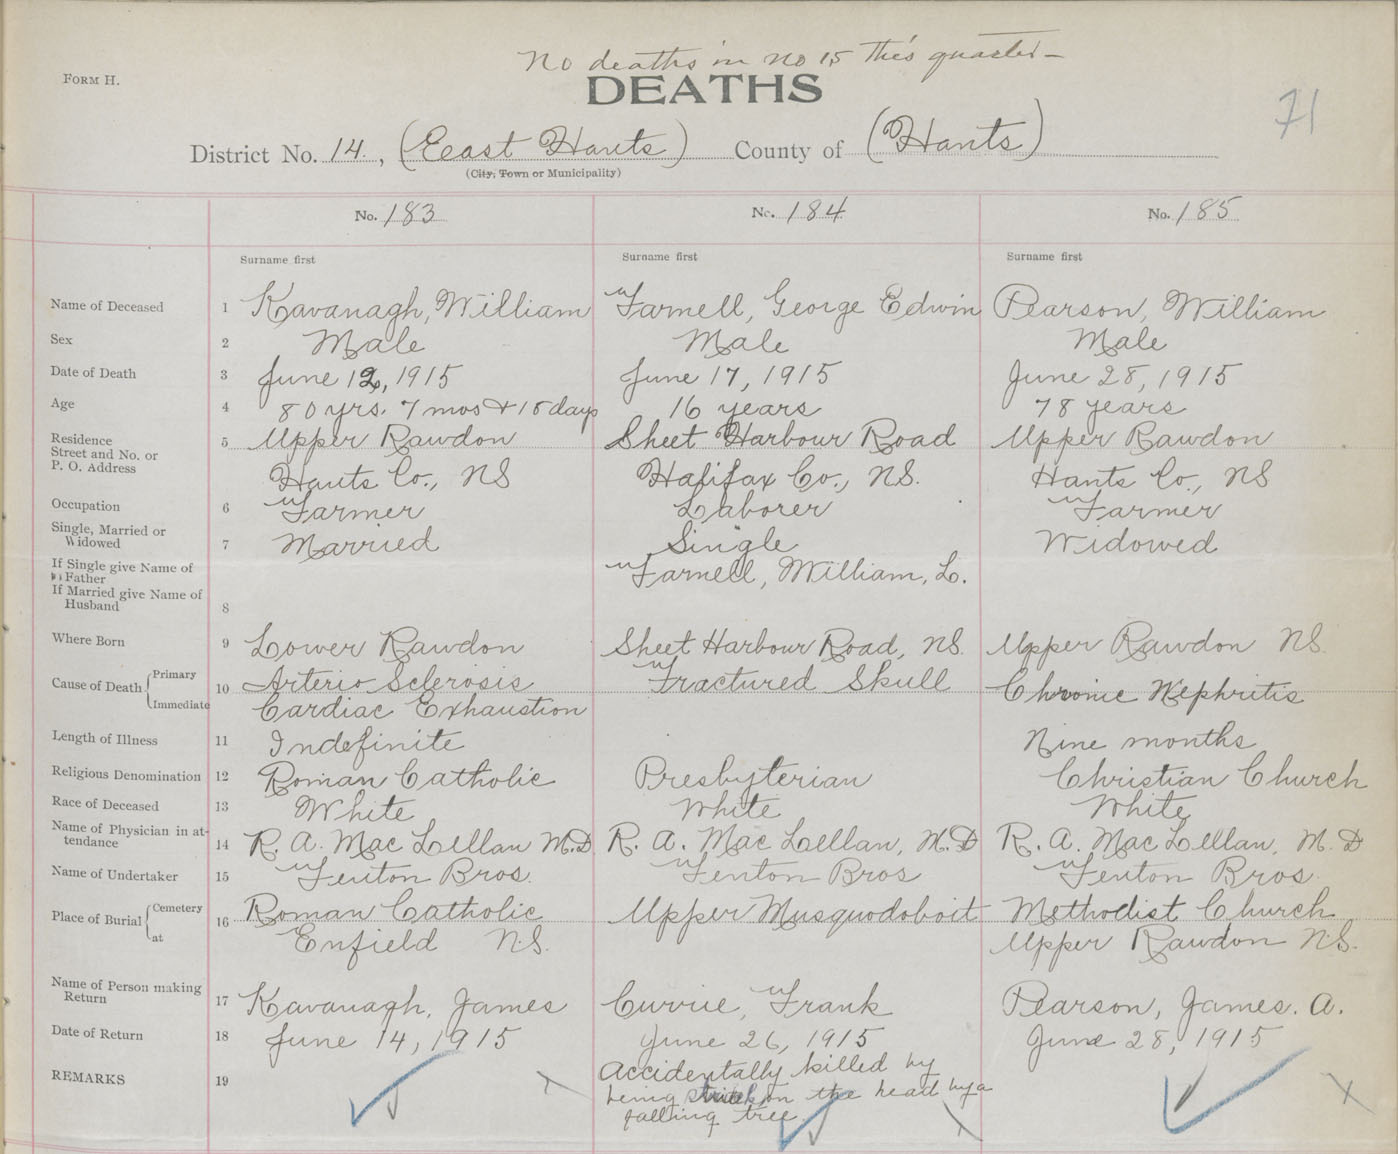 No deaths in no 15 this quarter -
FORM H.
DEATHS
71
District No. 14., (East Hants) County of (Hants)
(City, Town or Municipality)
No. 183 No. 184 No. 185
Surname first Surname first Surname first
Name of Deceased 1 Kavanagh, William Farnell, George Edwin Pearson, William
Sex 2 Male Male Male
Date of Death 3 June 12, 1915 June 17, 1915 June 28, 1915
Age 4 80 yrs. 7 mos + 18 days 16 years 78 years
Residence Street and No. or P. O. Address 5 Upper Rawdon Sheet Harbour Road Upper Rawdon
Hants Co., NS Halifax Co., NS. Hants Co., NS
Occupation 6 Farmer Laborer Farmer
Single, Married or Widowed 7 Married Single Widowed
If Single give Name of Father Farnell, William, L.
If Married give Name of Husband 8
Where Born 9 Lower Rawdon Sheet Harbour Road, NS. Upper Rawdon NS.
Cause of Death Primary 10 Arterio Sclerosis Fractured Skull Chronic Nephritis
Immediate Cardiac Exhaustion
Length of Illness 11 Indefinite Nine months
Religious Denomination 12 Roman Catholic Presbyterian Christian Church
Race of Deceased 13 White White White
Name of Physician in attendance 14 R. A. Mac Lellan M.D. R. A. Mac Lellan, M.D R. A. Mac Lellan, M.D
Name of Undertaker 15 Fenton Bros. Fenton Bros Fenton Bros.
Place of Burial Cemetery 16 Roman Catholic Upper Musquodoboit Methodist Church
at Enfield N.S. Upper Rawdon N.S.
Name of Person making Return 17 Kavanagh, James Currie, Frank Pearson, James. A.
Date of Return 18 June 14, 1915 June 26, 1915 June 28, 1915
REMARKS 19 Accidentally killed by
being struck on the head by a
falling tree.